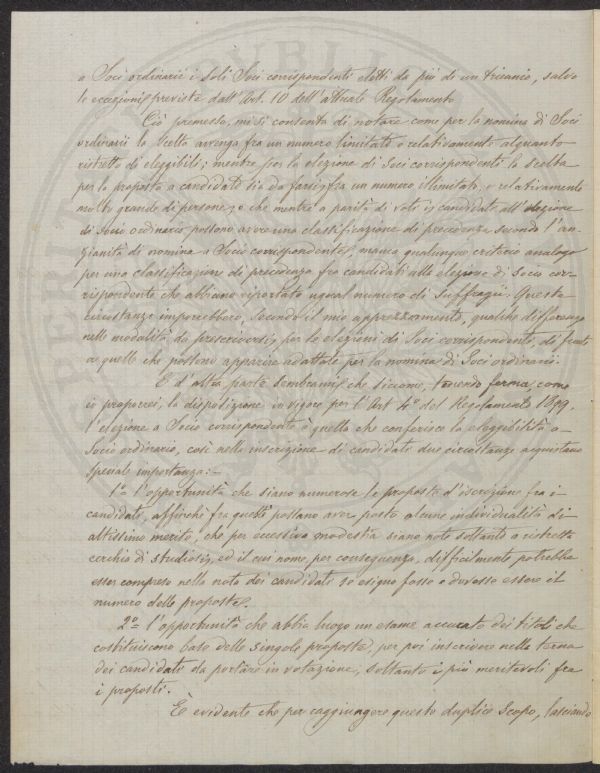 a Socî ordinarii i soli Soci corrispondenti eletti da più di un triennio, salvo
le eccezioni previste dall'Art. 10 dell'attuale Regolamento
Ciò premesso, mi si consenta di notare come per la nomina di Soci
ordinarii la scelta avvenga fra un numero limitato e relativamente alquanto
ristretto di eleggibili; mentre, per la elezione di Soci corrispondenti la scelta
per la proposta a candidato sia da farsi fra un numero illimitato, e relativamente
molto grande di persone; e che mentre a parità di voti i candidati all'elezione
di Socio ordinario possono avere una classificazione di precedenza secondo l'an-
zianità di nomina a Socio corrispondente, manca qualunque criterio analogo
per una classificazione di precedenza fra candidati alla elezione di Socio cor-
rispondente che abbiano riportato ugual numero di suffragii. Questa
circostanza imporrebbero, secondo il mio apprezzamento, qualche differenza
nelle modalità da prescriversi, per le elezioni di Soci corrispondenti, di fronte
a quelle che possono apparire adattate per la nomina di Soci ordinarii.
E d'altra parte sembrami che siccome, tenendo ferma, come
io proporrei, la disposizione in vigore per l'Art 4º del Regolamento 1899,
l'elezione a Socio corrispondente è quella che conferisce la eleggibilità a
Socio ordinario, così nella inscrizione di candidati due circostanze acquistano
speciale importanza:-
1º l'opportunità che siano numerose le proposte d'iscrizione fra i
candidati, affinchè fra questi possano aver posto alcune individualità di
altissimo merito, che per eccessiva modestia siano note soltanto a ristretta
cerchia di studiosi, ed il cui nome, per conseguenza, difficilmente potrebbe
esser compreso nella nota dei candidati se esiguo fosse o dovesse essere il
numero delle proposte.
2º l'opportunità che abbia luogo un esame accurato dei titoli che
costituiscono base delle singole proposte, per poi inscrivere nella terna
dei candidati da portare in votazione, soltanto i più meritevoli fra
i proposti.
È evidente che per raggiungere questo duplice scopo, lasciando